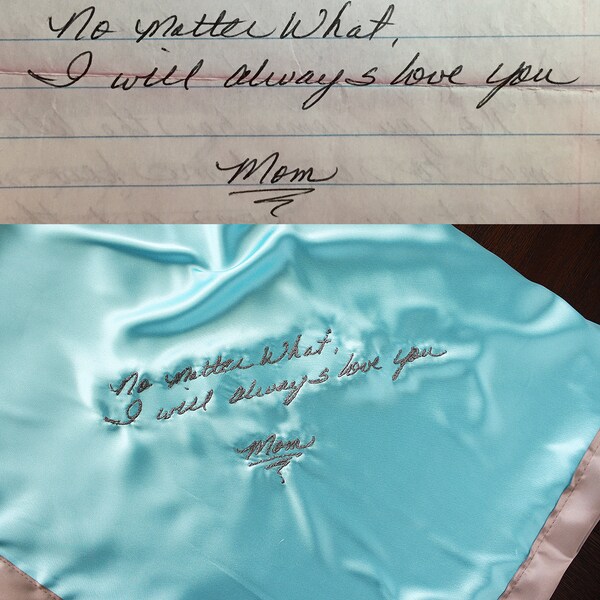 No matter What,
I will always love you
Mom
No matter What,
I will always love you
Mom